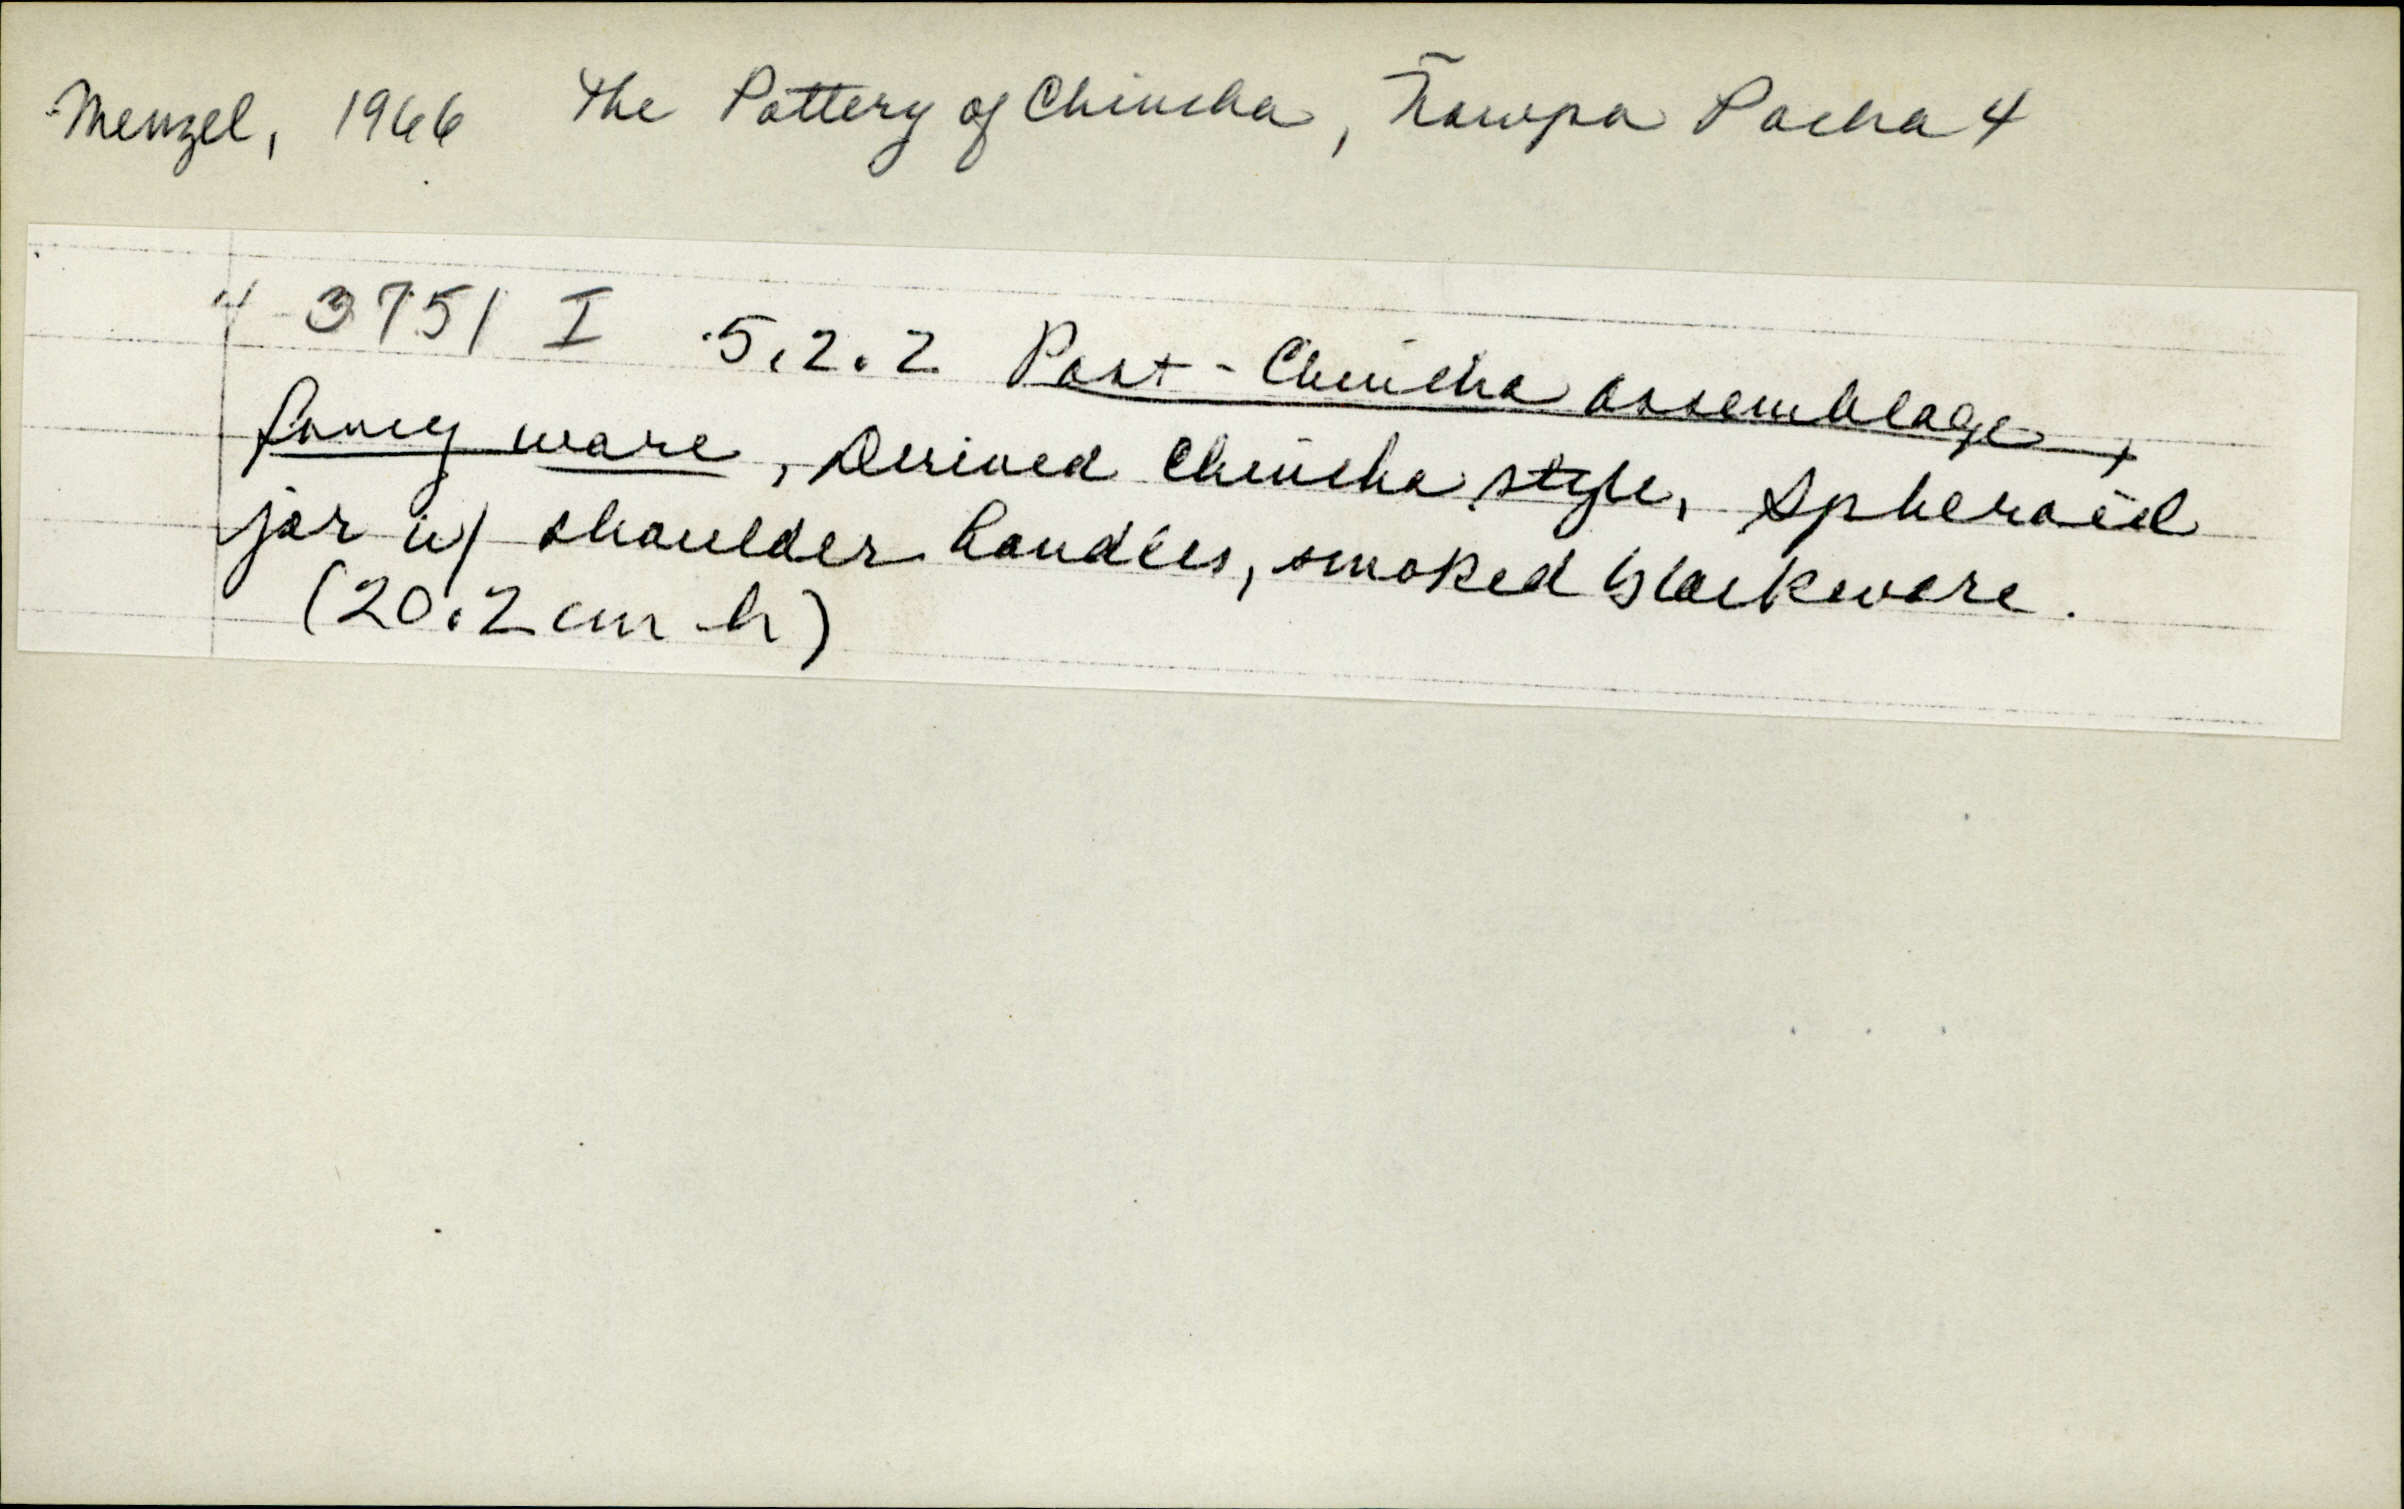 Menzel, 1966 The Pottery of Chincha, Ñawpa Pacha 4
4-3751 I 5.2.2 Post-Chincha assemblage,
fancy ware, Derived Chincha style, Spheroid
jar w/ shoulder handles, smoked blackware.
(20.2 cm h)